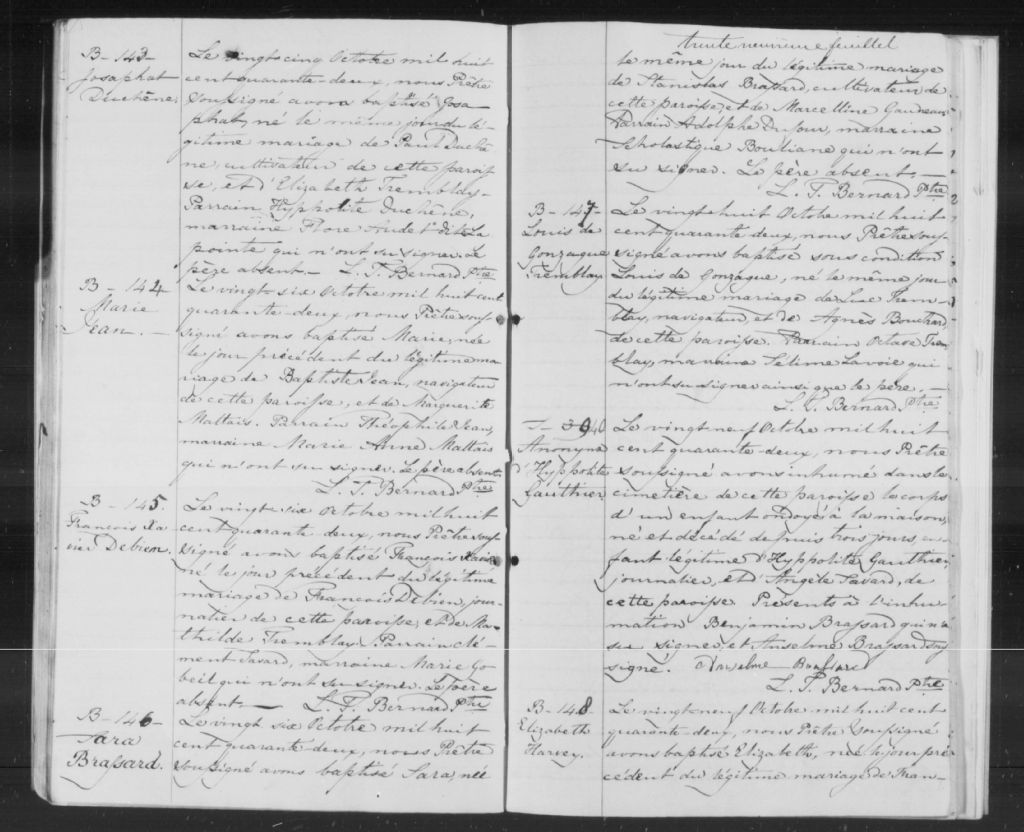 B - 143
Josaphat
Duchêne
Le vingt cinq Octobre mil huit
cent quarante deux, nous Prêtre
soussigné avons baptisé Josa
phat, né le même jour du lé-
gitime mariage de Paul Duchê
ne, cultivateur de cette parois
se, et d'Elizabeth Tremblay -
Parrain Hyppolite Duchêne,
marraine Flore Audet dit La
pointe qui n'ont su signer. Le
père absent. - L. T. Bernard Ptre
B - 144
Marie
Jean. -
Le vingt-six Octobre mil huit cent
quarante-deux, nous Prêtre sous-
signé avons baptisé Marie, née
le jour précédent du légitime ma
riage de Baptiste Jean, navigateur
de cette paroisse, et de Marguerite
Maltais. Parrain Théophile Jean,
marraine Marie Anne Maltais
qui n'ont su signer. Le père absent.
L. T. Bernard Ptre
B - 145.
François Xa
vier Debien.
Le vingt-six Octobre mil huit
cent quarante-deux, nous Prêtre sous
signé avons baptisé François Xavier
né le jour précédent du légitime
mariage de François Debien, jour-
nalier de cette paroisse, et de Ma-
thilde Tremblay. Parrain Clé-
ment Savard, marraine Marie Go
beil qui n'ont su signer. Le père
absent. - L. T. Bernard Ptre
B - 146 -
Sara
Brassard.
Le vingt six Octobre mil huit
cent quarante deux, nous Prêtre
soussigné avons baptisé Sara, née
trente neuvième feuillet
le même jour du légitime mariage
de Stanislas Brassard, cultivateur de
cette paroisse et de Marcelline Gaudreau
Parrain Adolphe Dufour, marraine
Scholastique Bouliane qui n'ont
su signer. Le père absent. -
L. T. Bernard Ptre
B - 147 -
Louis de
Gonzague
Tremblay
Le vingt-huit Octobre mil huit
cent quarante deux, nous Prêtre sous-
signé avons baptisé sous condition
Louis de Gonzague, né le même jour
du légitime mariage de Luc Trem-
blay, navigateur, et de Agnès Bouchard,
de cette paroisse. Parrain Octave Trem
blay, marraine Zélime Lavoie qui
n'ont su signer ainsi que le père. -
L. T. Bernard Ptre
Anonyme
d'Hyppolite
Gauthier
Le vingt neuf Octobre mil huit
cent quarante-deux, nous Prêtre
soussigné avons inhumé dans le
cimetière de cette paroisse le corps
d'un enfant ondoyé à la maison,
né et décédé depuis trois jours, en-
fant légitime d'Hyppolite Gauthier,
journalier, et d'Angèle Savard, de
cette paroisse. Présents à l'inhu
mation Benjamin Brassard qui n'a
su signer, et Anselme Brassard sous
signé. Anselme Brassard
L. T. Bernard Ptre
B - 148
Elizabeth
Harvey.
Le vingt-neuf Octobre mil huit cent
quarante-deux, nous Prêtre soussigné
avons baptisé Elizabeth, née le jour pré
cédent du légitime mariage de Fran-